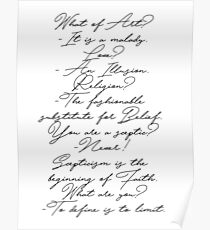 What of Art?
- It is a malady.
Love?
- An Illusion.
Religion?
- The fashionable
substitute for Belief.
You are a sceptic?
- Never!
Scepticism is the
beginning of Faith.
What are you?
- To define is to limit.